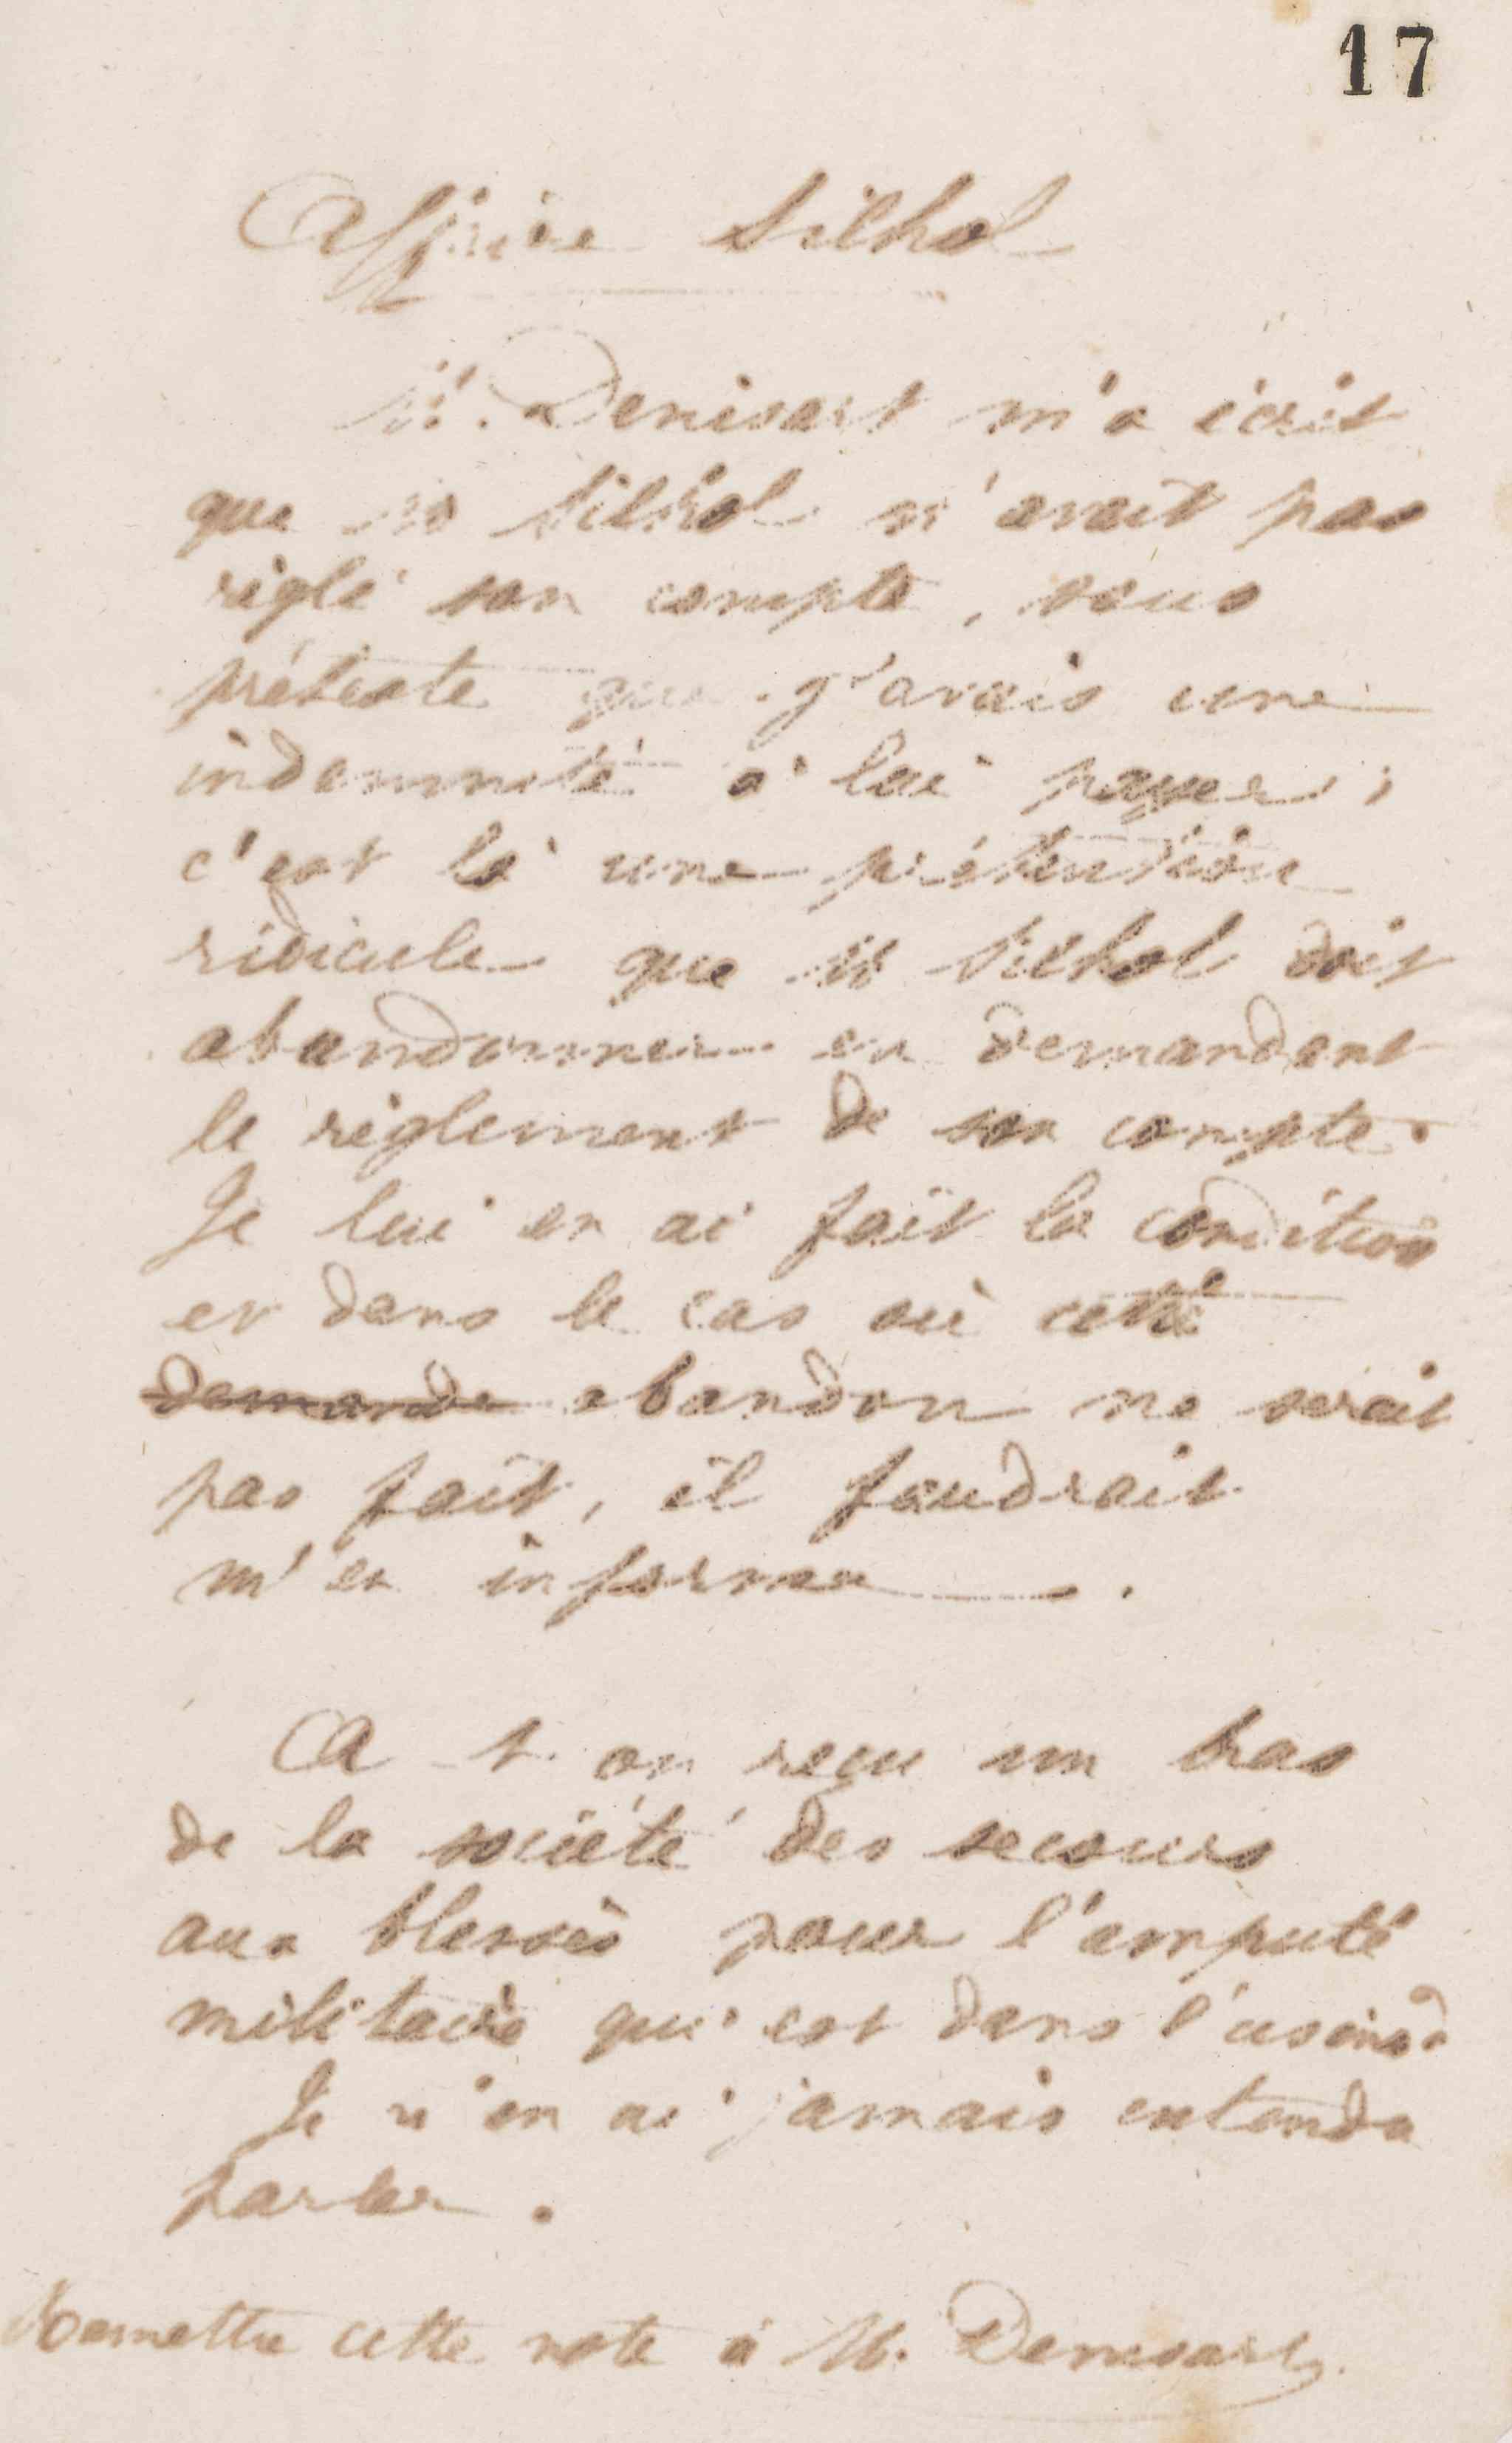 17
Affaire Silhol
M. Denisart m'a écrit
que M Silhol n'avait pas
réglé son compte, sous
prétexte que j'avais une
indemnité à lui payer ;
c'est là une prétention
ridicule que M Silhol doit
abandonner en demandant
le règlement de son compte.
Je lui en ai fait la condition
et dans le cas où cette
demande abandon ne serait
pas fait, il faudrait
m'en informer.
A-t-on reçu un bras
de la société des secours
aux blessés pour l'amputé
militaire qui est dans l'usine ?
Je n'en ai jamais entendu
parler.
Remettre cette note à M. Denisart